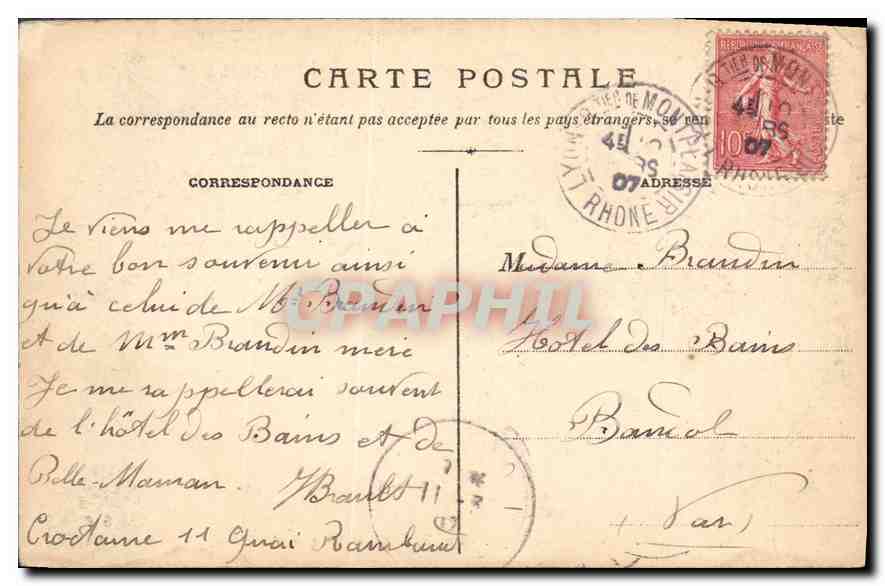 CARTE POSTALE
La correspondance au recto n'étant pas acceptée par tous les pays étrangers, se ren
CORRESPONDANCE
ADRESSE
Je viens me rappeller à
votre bon souvenir ainsi
qu'à celui de Mr Brandin
et de Mme Brandin mère
Je me rappellerai souvent
de l'hôtel des Bains et de
Belle-Maman.
11 Quai
Madame Brandin
Hôtel des Bains
Bandol
(Var)
REPUBLIQUE FRANÇAISE
10
LYON MONTPLAISIR
RHONE
07
CPAPHIL